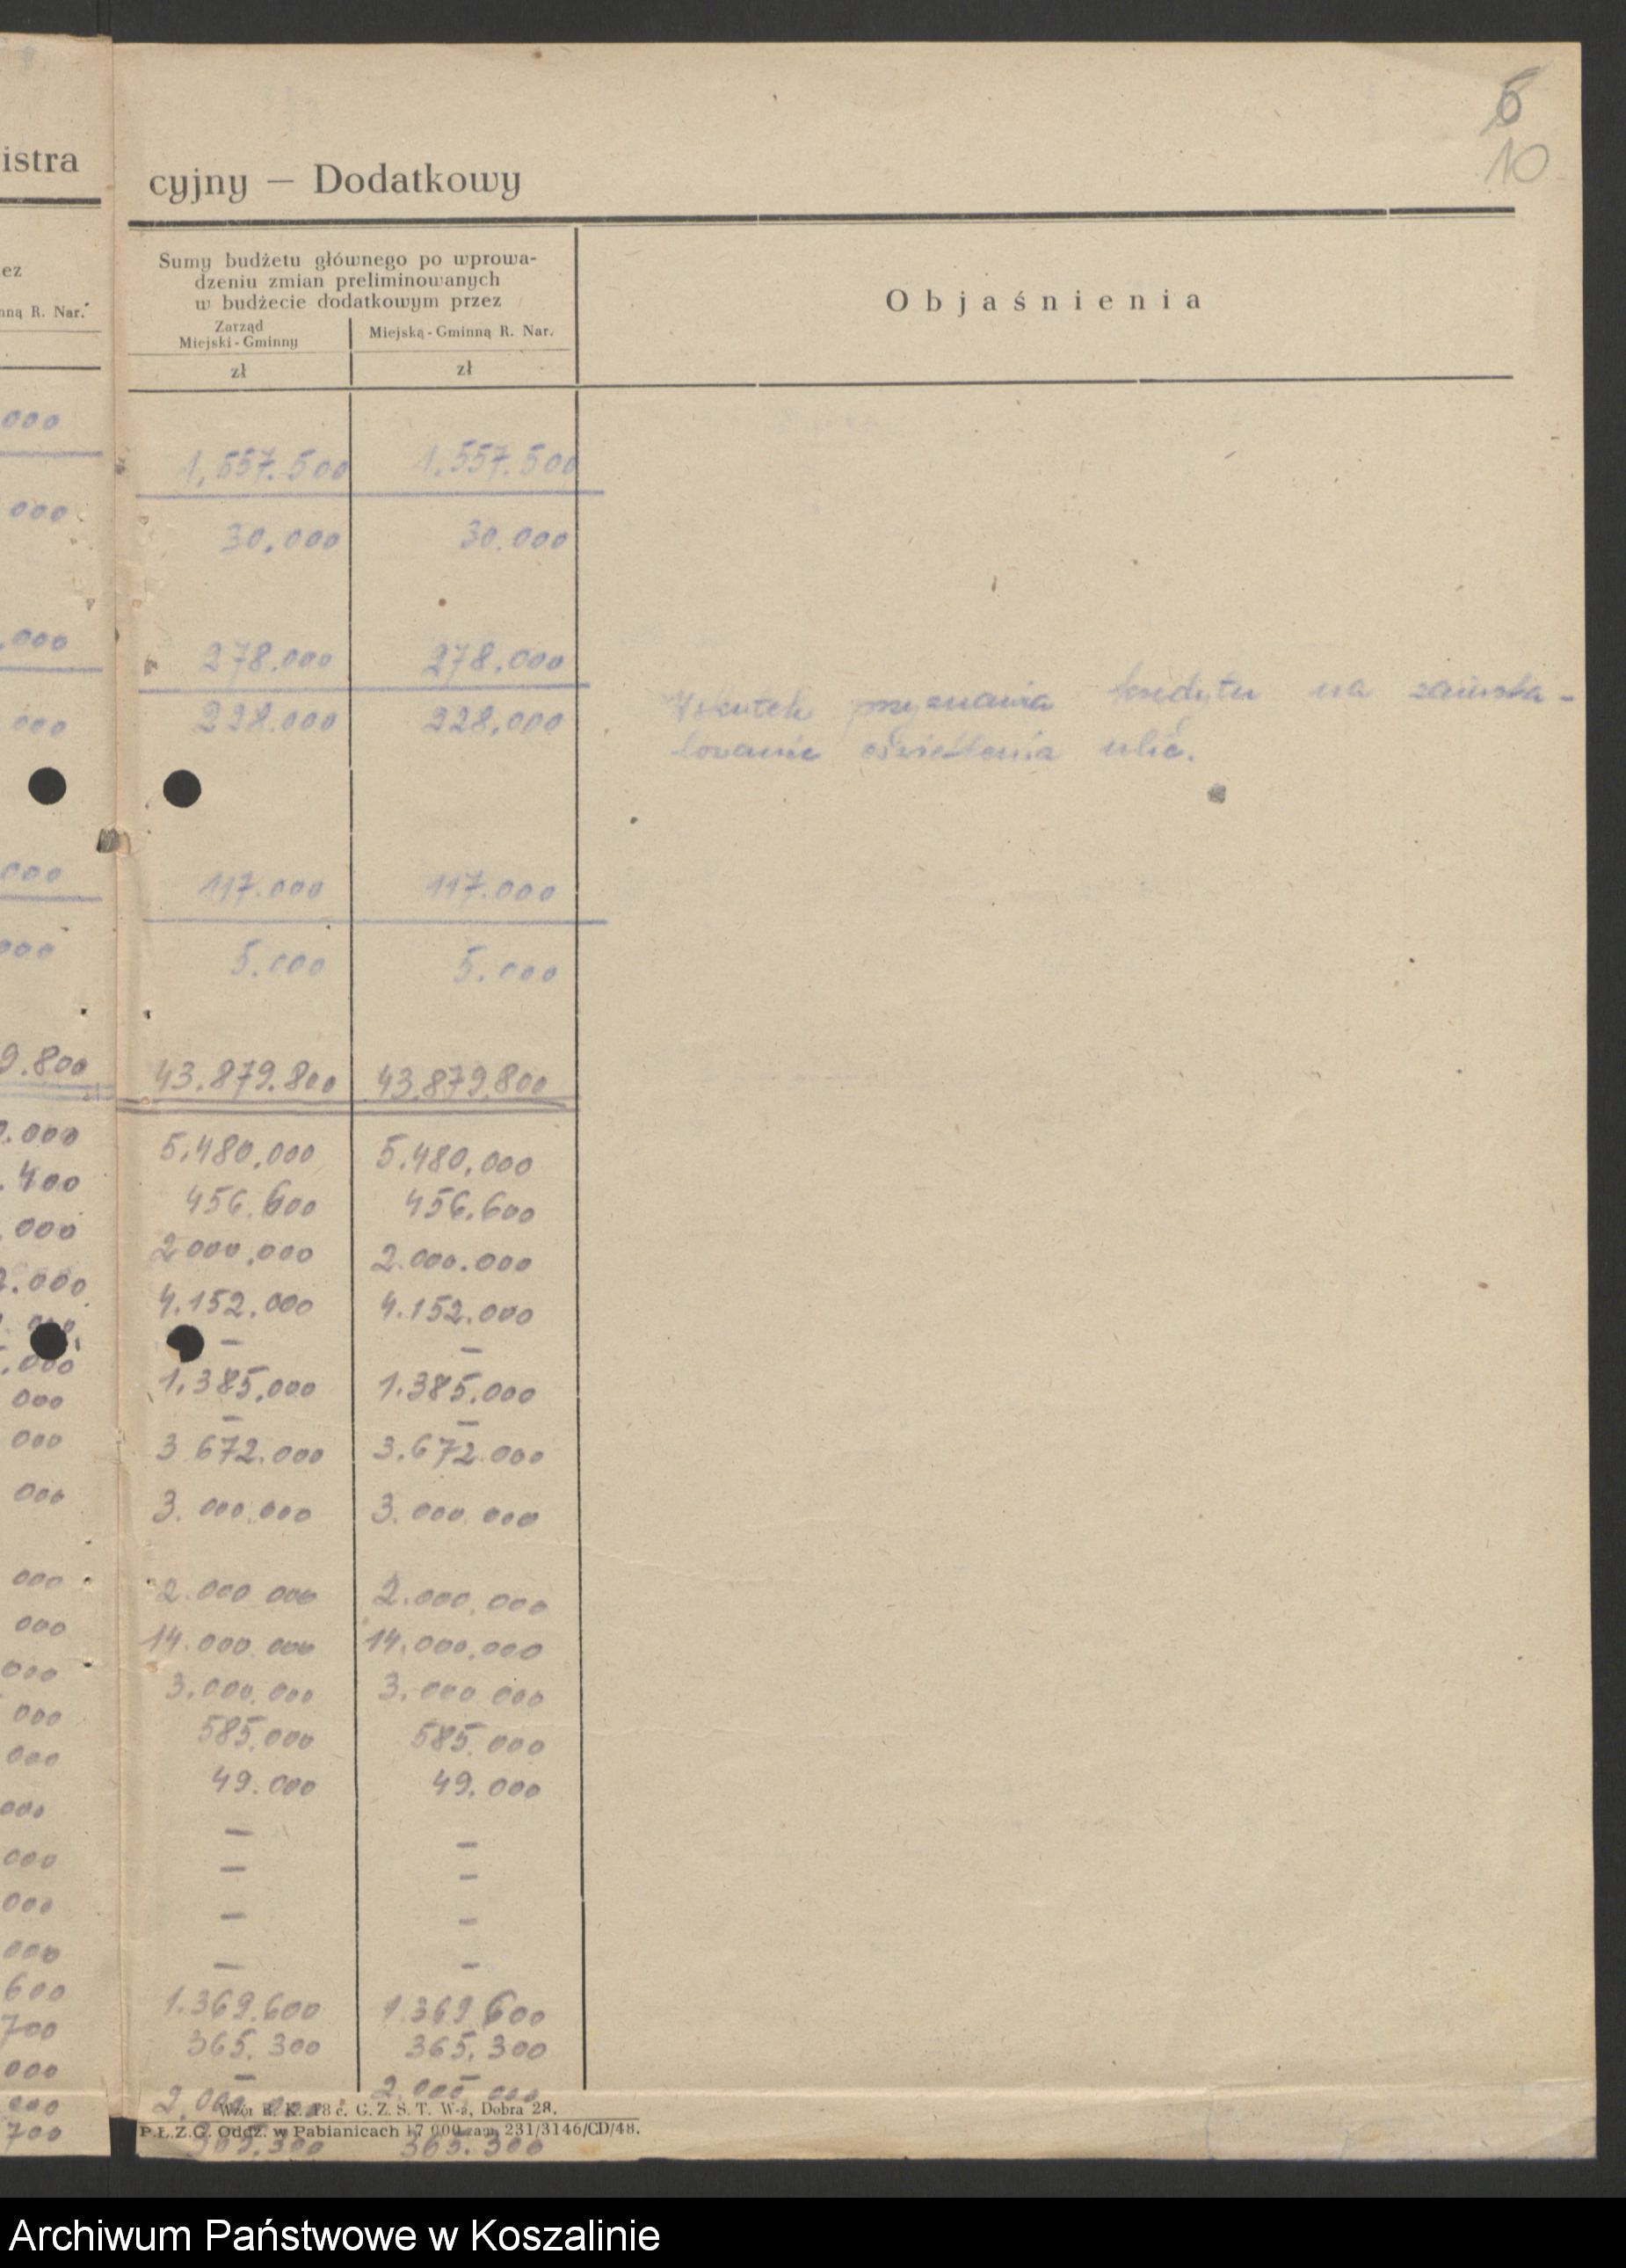 6
10
istra
cyjny — Dodatkowy
ez
nną R. Nar.
Sumy budżetu głównego po wprowa-
dzeniu zmian preliminowanych
w budżecie dodatkowym przez
Zarząd
Miejski - Gminny
Miejską - Gminną R. Nar.
Objaśnienia
zł zł
000
1,557.500 1.557.500
000
30,000 30.000
.000
278.000 278.000
000
228.000 228,000
Wskutek przyznania kredytu na zainsta-
lowanie oświetlenia ulic.
000
117.000 117.000
000
5.000 5.000
9.800 43.879.800 43.879.800
.000 5,480,000 5.480,000
.400 456.600 456.600
.000 2000,000 2.000.000
.000 4.152.000 4.152.000
— —
.000 1,385,000 1.385.000
000 — —
000 3 672.000 3.672.000
000 3.000.000 3.000.000
000 2.000 000 2.000.000
000 14.000.000 14.000,000
000 3.000.000 3.000 000
000 585.000 585.000
000 49.000 49.000
000 — —
000 — —
000 — —
000 — —
600 1.369.600 1.369 600
700 365.300 365.300
000 — —
000 2.000.000 2.000.000
Wzór B. K. 18 c. G. Z. S. T. W-a, Dobra 28.
P.Ł.Z.G. Oddz. w Pabianicach 17 000 zam. 231/3146/CD/48.
700 365.300 365.300
Archiwum Państwowe w Koszalinie